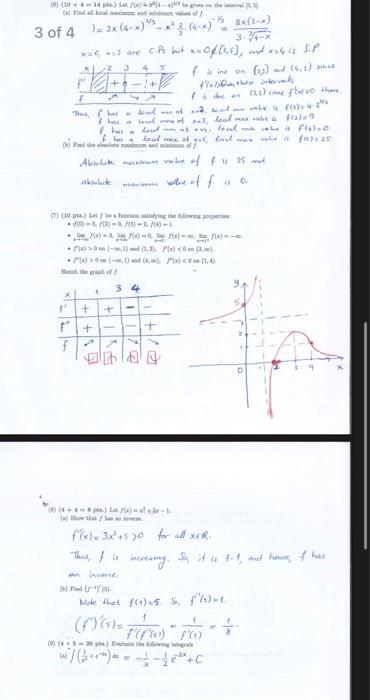 (6) (10 + 4 = 14 pts.) Let f(x) = x²(4 − x)^2/3 be given on the interval [2, 5].
(a) Find all local maximum and minimum values of f.
3 of 4
) = 2x (4-x)^2/3 - x² 2/3 (4-x)^-1/3 = 8x(3-x) / 3·∛4-x
x=0, x=3 are C.Ps but x=0∉[2,5], and x=4 is S.P
x 2 3 4 5
f' + - +
f
f is inc on (2,3) and (4,5) since
f'(x)>0 on these intervals
f is dec. on (3,4) since f'(x)<0 there.
Thus, f has a local min at x=2, local min value is f(2)=4·2^2/3
f has a local max at x=3, local max value is f(3)=9
f has a local min at x=4, local min value is f(4)=0
f has a local max at x=5, local max value is f(5)=25.
(b) Find the absolute maximum and minimum of f.
Absolute maximum value of f is 25 and
absolute minimum value of f is 0.
(7) (10 pts.) Let f be a function satisfying the following properties:
• f(0) = 5, f(2) = 0, f(3) = 2, f(4) = 1.
• lim f(x) = 3, lim f(x) = 0, lim f(x) = ∞, lim f(x) = −∞.
• f'(x) > 0 on (−∞, 1) and (1, 3), f'(x) < 0 on (3, ∞).
• f''(x) > 0 on (−∞, 1) and (4, ∞), f''(x) < 0 on (1, 4).
Sketch the graph of f.
x 1 3 4
f' + + - -
f'' + - - +
f
y
5
3
2
1
0 2 3 4 x
(8) (4 + 4 = 8 pts.) Let f(x) = x³ + 5x − 1.
(a) Show that f has an inverse.
f'(x) = 3x²+5 >0 for all x∈R.
Thus, f is increasing. So, it is 1-1, and hence, f has
an inverse.
(b) Find (f⁻¹)'(5).
Note that f(1)=5. So, f⁻¹(5)=1.
(f⁻¹)'(5) = 1 / f'(f⁻¹(5)) = 1 / f'(1) = 1/8.
(9) (4 × 5 = 20 pts.) Evaluate the following integrals
(a) ∫(1/x² + e^-2x) dx = -1/x - 1/2 e^-2x + C